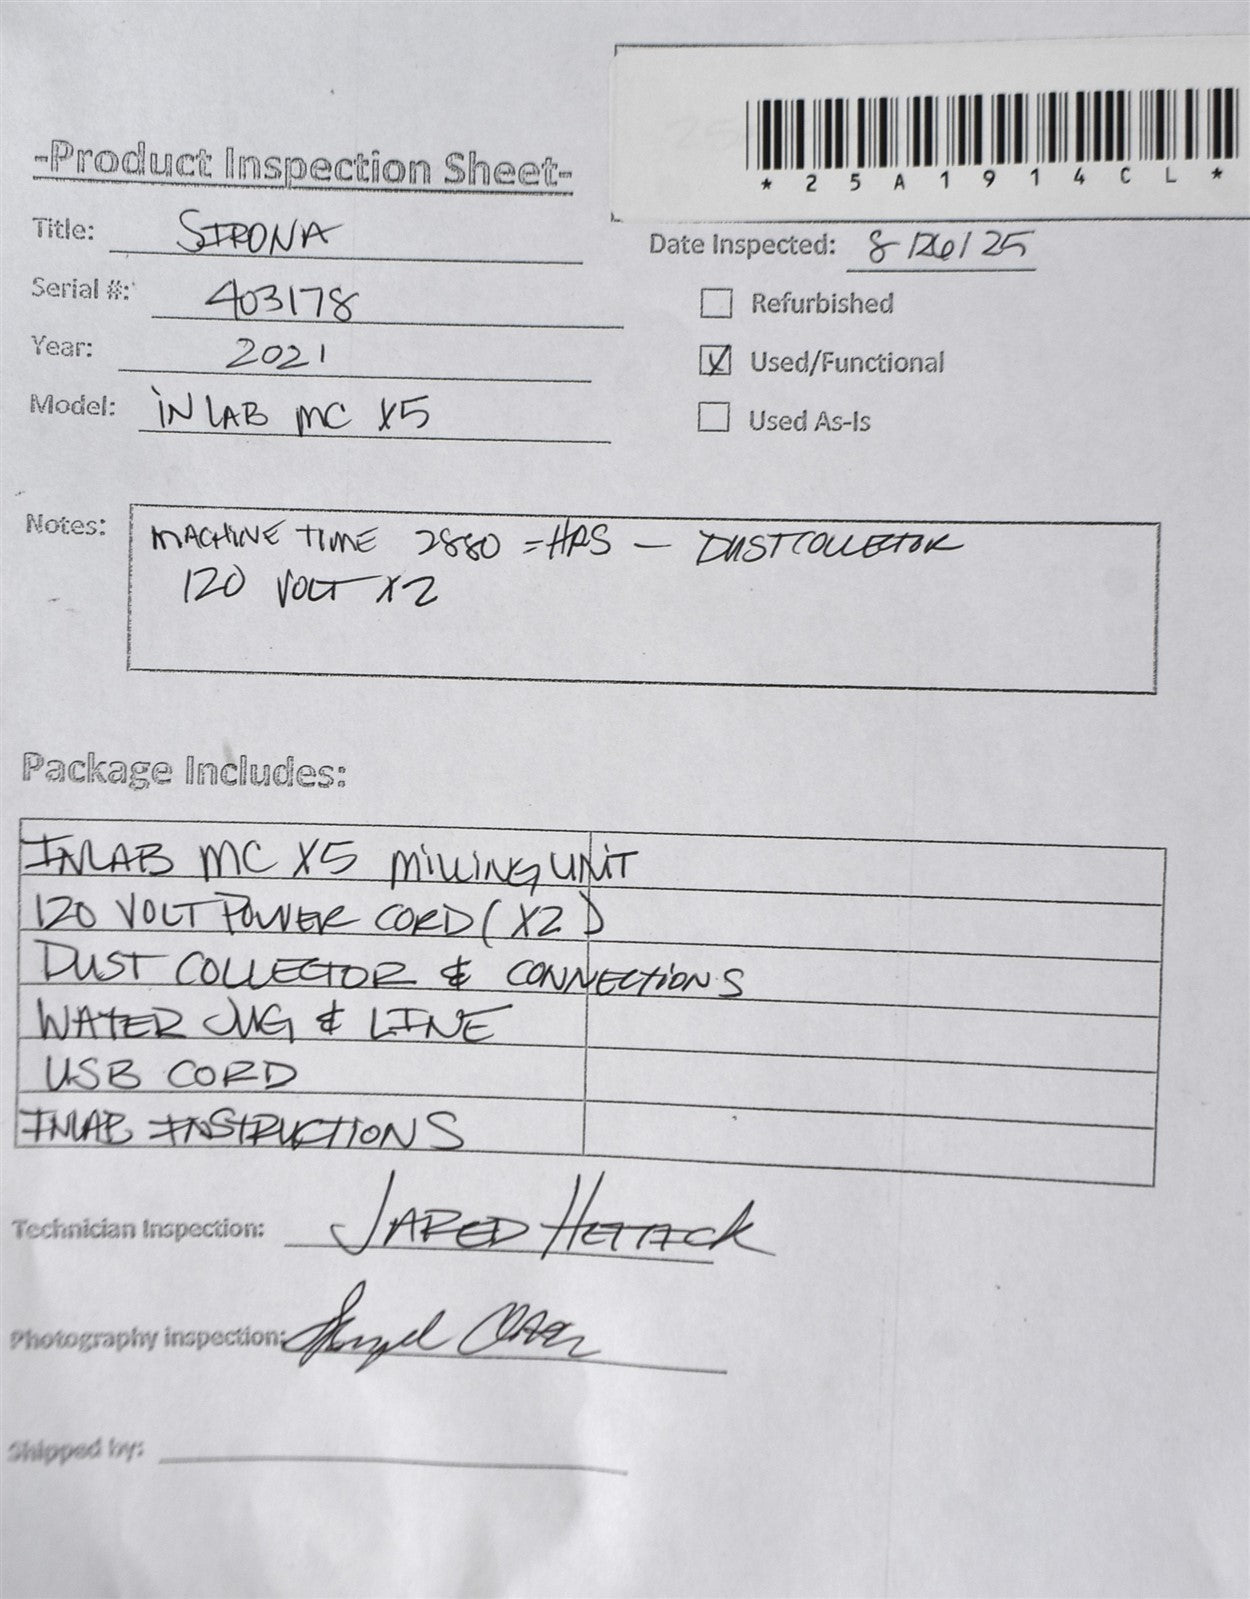 *25A1914CL*
-Product Inspection Sheet-
Title: SIRONA
Date Inspected: 8/26/25
Serial #: 403178
Refurbished
Year: 2021
X Used/Functional
Model: INLAB MC X5
Used As-Is
Notes: MACHINE TIME 2880 = HRS — DUST COLLECTOR
120 VOLT X2
Package Includes:
INLAB MC X5 MILLING UNIT
120 VOLT POWER CORD (X2)
DUST COLLECTOR & CONNECTIONS
WATER JUG & LINE
USB CORD
INLAB INSTRUCTIONS
Technician Inspection: JARED
Photography inspection:
Shipped by: